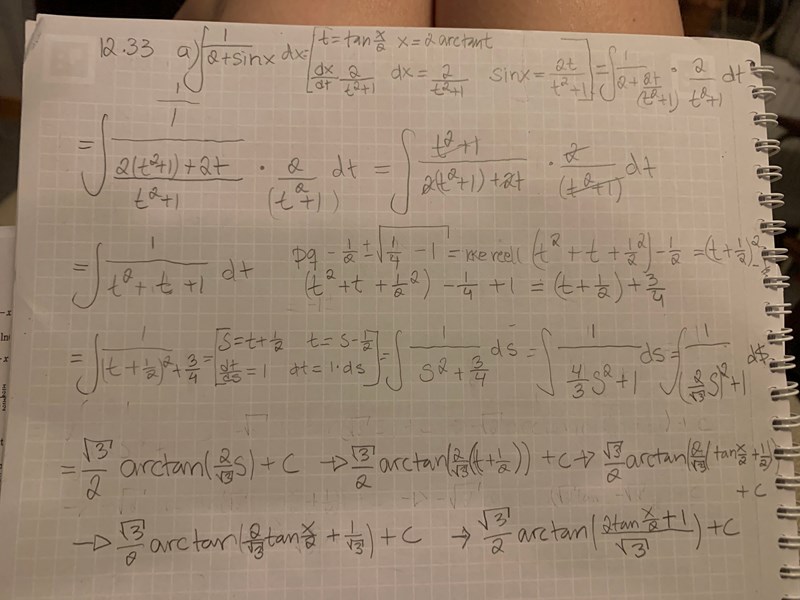 12.33 a) ∫ 1/(2+sinx) dx = [t = tan x/2  x = 2arctant  dx/dt 2/(t²+1)  dx = 2/(t²+1)  sinx = 2t/(t²+1)] = ∫ 1/(2 + 2t/(t²+1)) · 2/(t²+1) dt
= ∫ 1/((2(t²+1)+2t)/(t²+1)) · 2/(t²+1) dt = ∫ (t²+1)/(2(t²+1)+2t) · 2/(t²+1) dt
= ∫ 1/(t² + t + 1) dt  pq -1/2 ± √(1/4 - 1) = (t² + t + 1/2²) - 1/2 = (t + 1/2)²
(t² + t + 1/2²) - 1/4 + 1 = (t + 1/2) + 3/4
= ∫ 1/((t + 1/2)² + 3/4) = [S = t + 1/2  t = S - 1/2  dt/ds = 1  dt = 1·ds] = ∫ 1/(S² + 3/4) ds = ∫ 1/(4/3 S² + 1) ds = ∫ 1/((2/√3 S)² + 1)
= √3/2 arctan(2/√3 S) + C → √3/2 arctan(2/√3 (t + 1/2)) + C → √3/2 arctan(2/√3 (tan x/2 + 1/2))
+ C
→ √3/2 arctan(2/√3 tan x/2 + 1/√3) + C → √3/2 arctan((2tan x/2 + 1)/√3) + C